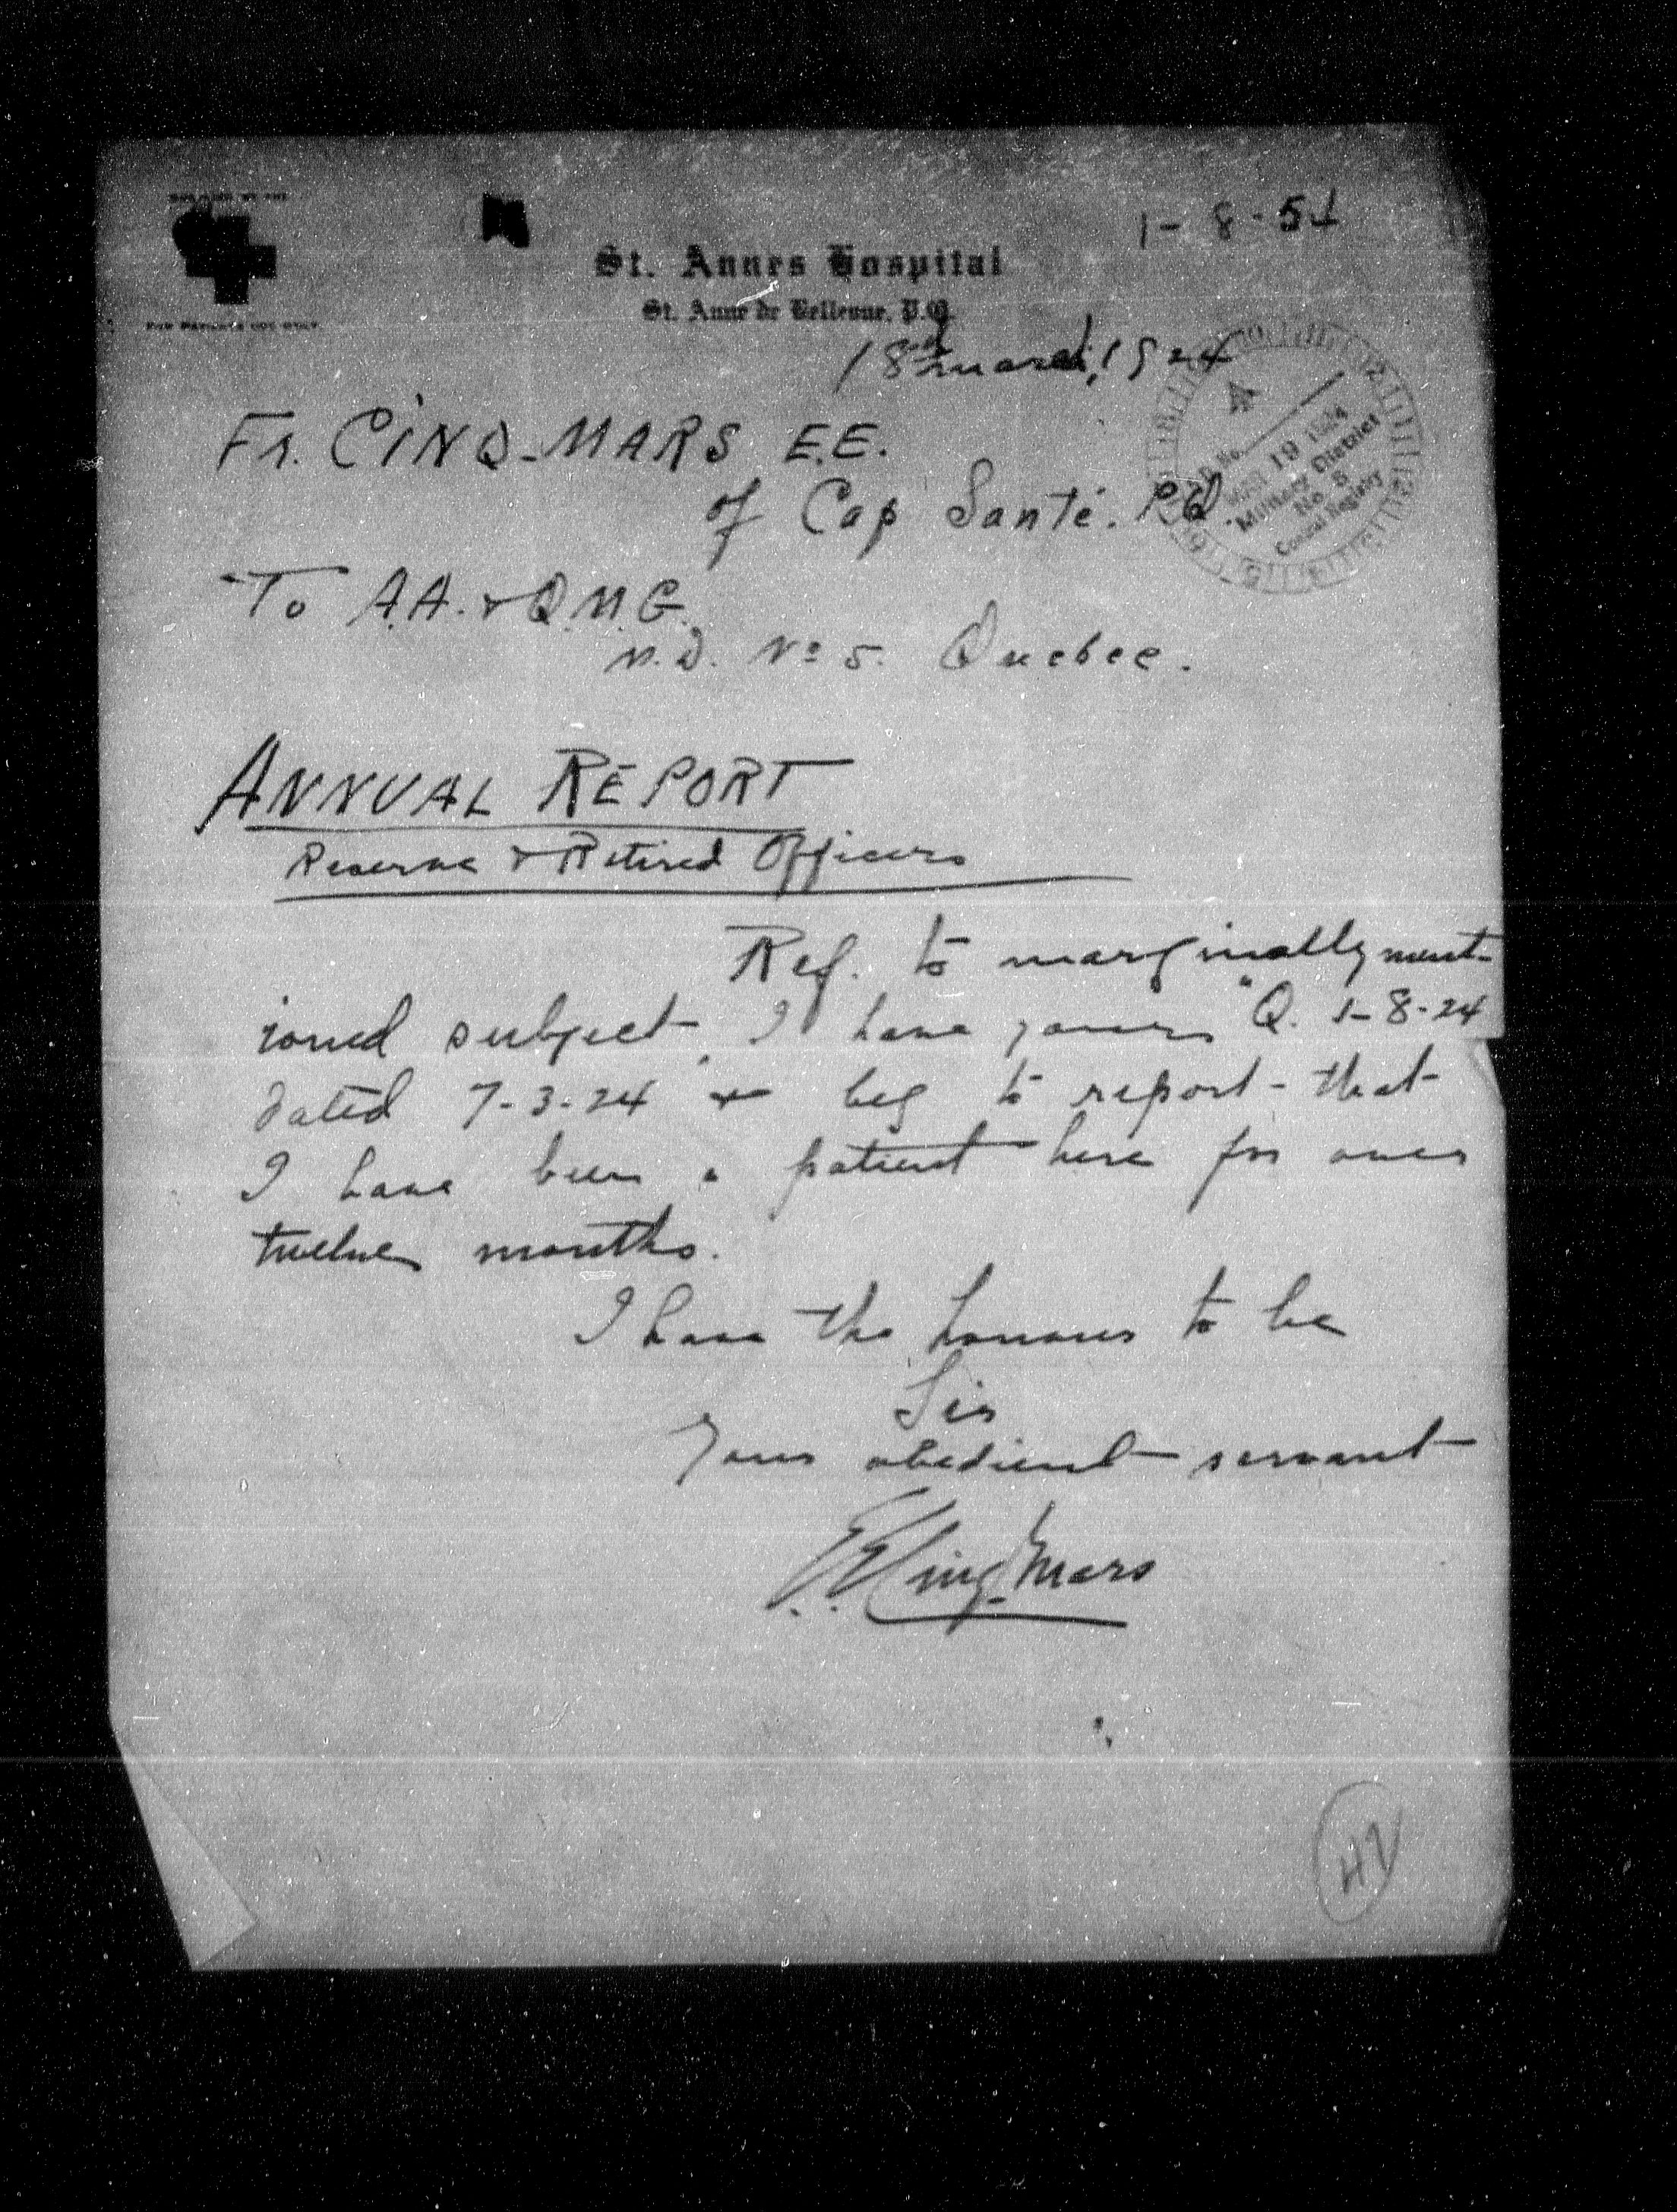 1-8-51
St. Annes Hospital
St. Anne de Bellevue, P.Q.
18th March, 1924
FOR PATIENTS USE ONLY
Fr. CINQ-MARS E.E.
of Cap Santé. P.Q.
MAR 19 1924
Military District
No. 5
Central Registry
To A.A. & Q.M.G.
M.D. No 5. Quebec.
ANNUAL REPORT
Reserve & Retired Officers
Ref. to marginally ment-
ioned subject, I have yours "Q. 1-8-24
dated 7-3-24 & beg to report that
I have been a patient here for over
twelve months.
I have the honour to be
Sir
Your obedient servant
E.E. Cinq-Mars
42